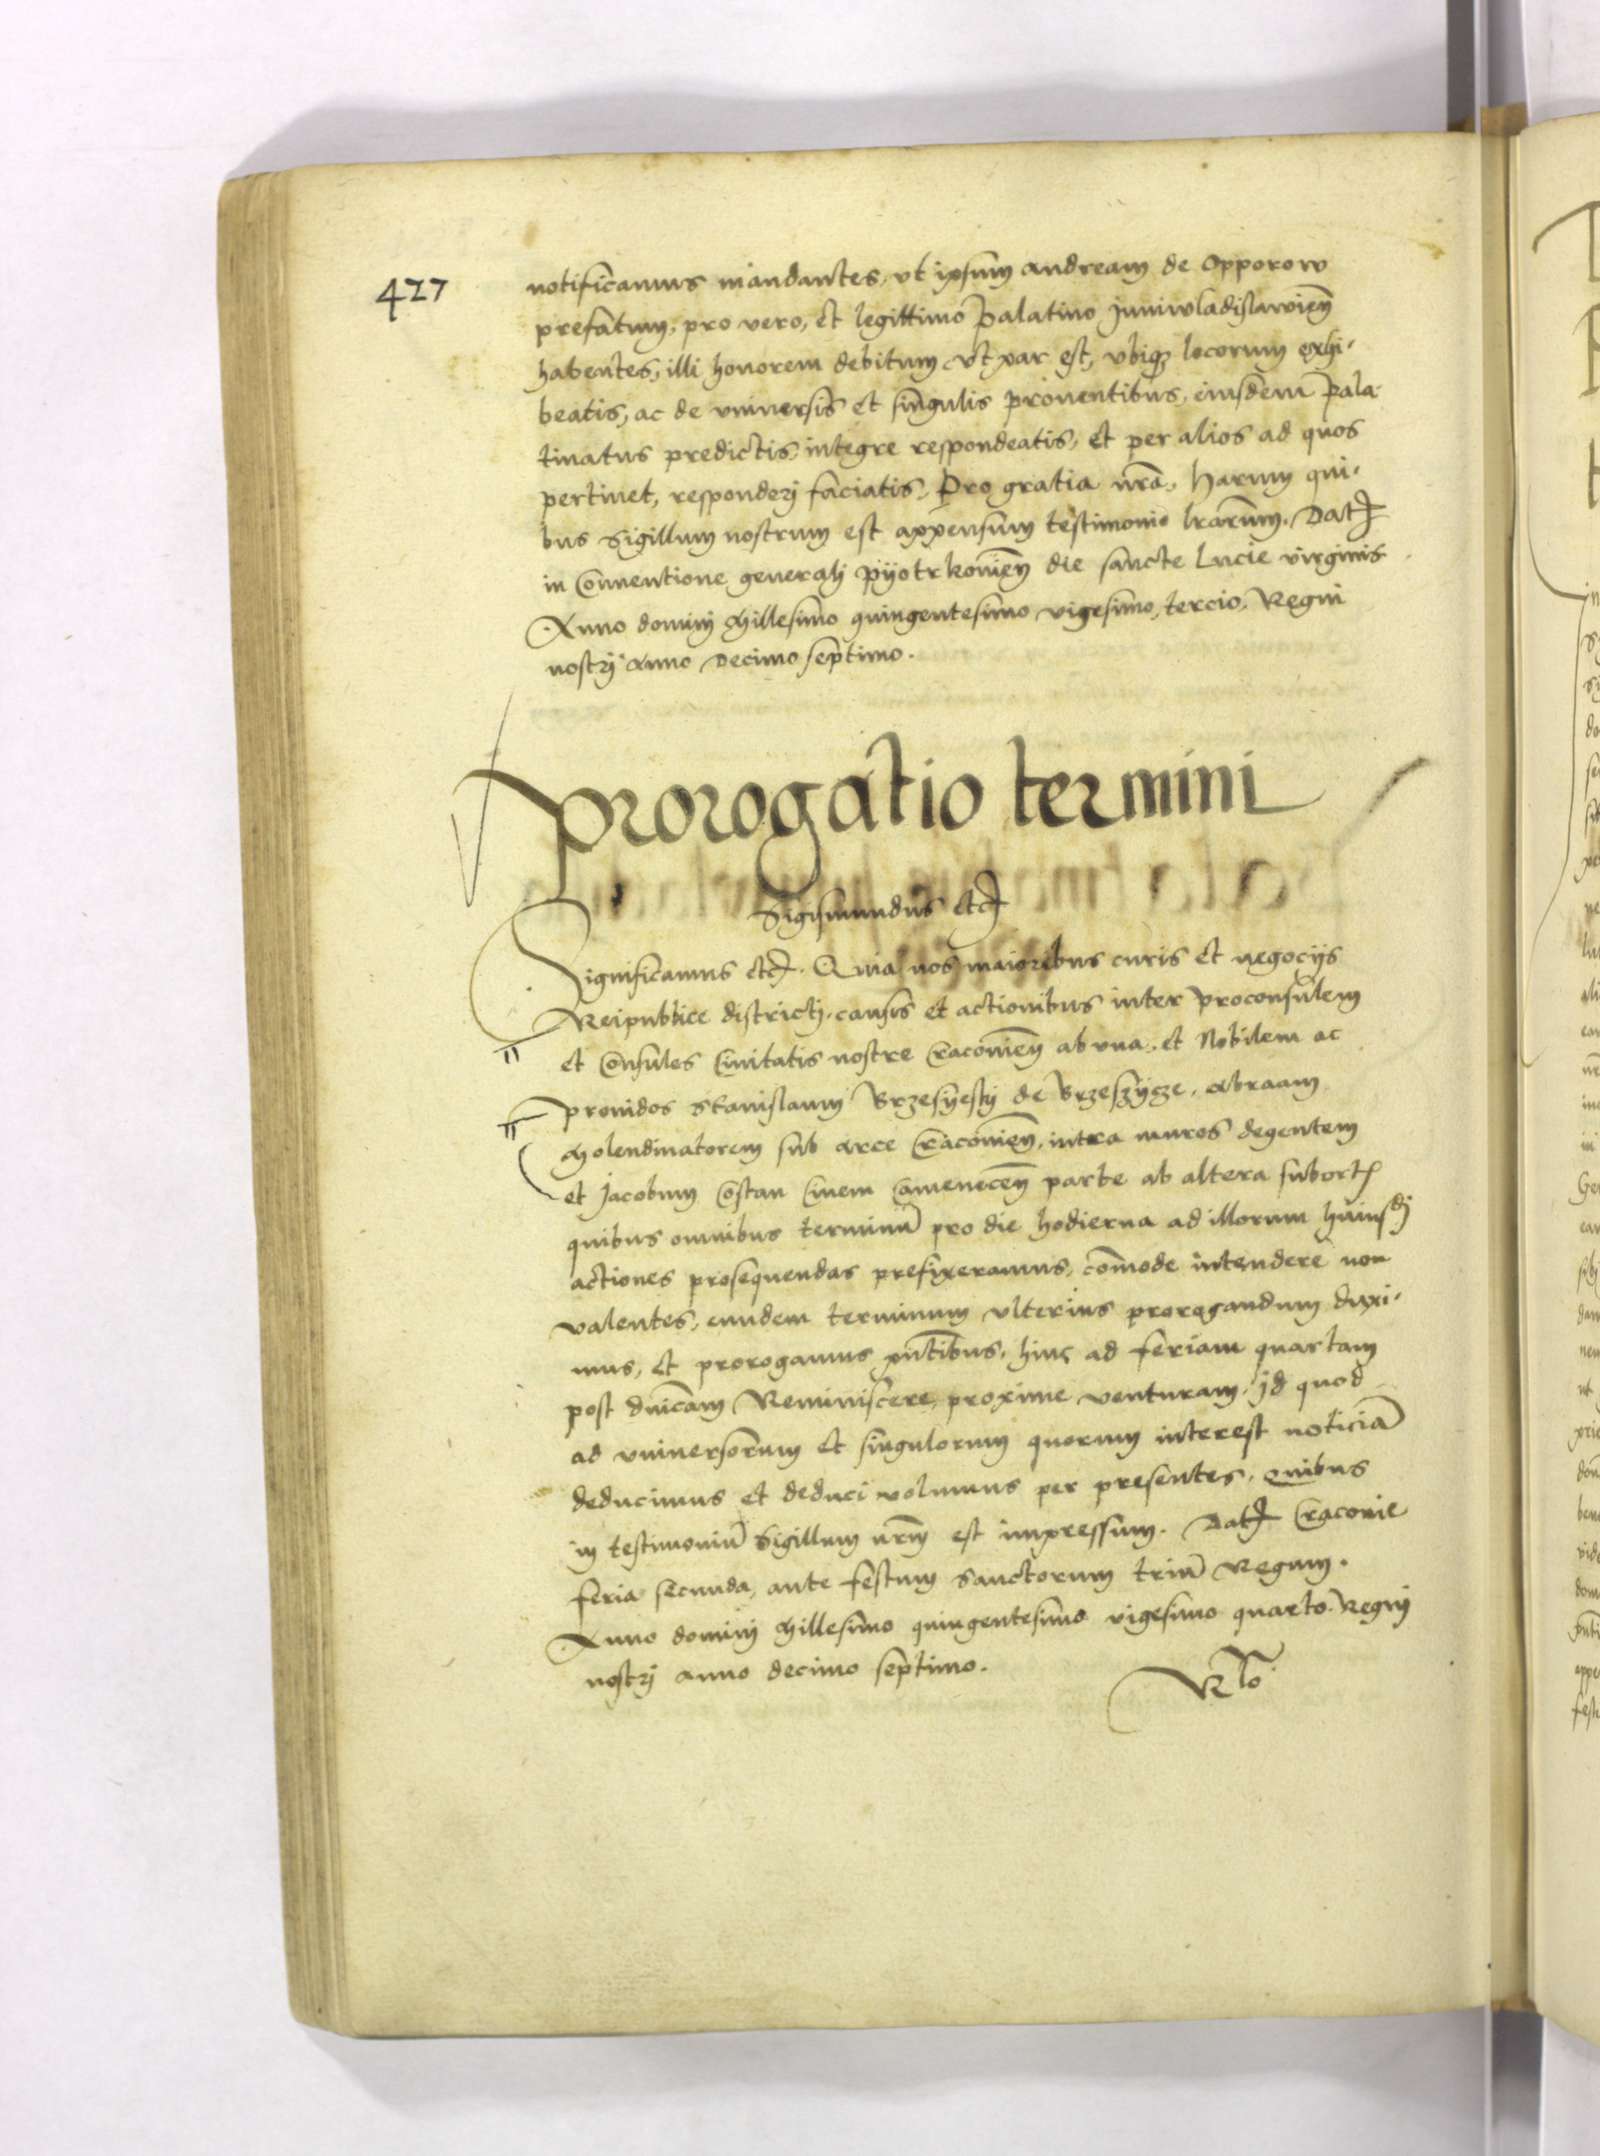 427
notificamus mandantes, vt ipsum Andream de Opporow
prefatum, pro vero, et legittimo Palatino Juniwladislawien̄
habentes, illi honorem debitum vt par est, vbiqȝ locorum exhi-
beatis, ac de vniversis et singulis proventibus, eiusdem Pala-
tinatus predictis, integre respondeatis, et per alios ad quos
pertinet, responderi faciatis, Pro gratia nrā, Harum qui-
bus Sigillum nostrum est appensum testimonio lrārum. Dat
in Conventione generali Pyotrkovien̄ die sancte Lucie virginis
Anno domini Millesimo quingentesimo vigesimo, tercio, Regni
nostri anno Decimo septimo.
Prorogatio termini
Sigismundus etc
Significamus etc. Quia nos maioribus curis et negocijs
Reipublice districti, causis et actionibus inter Proconsulem
et Consules Civitatis nostre Cracovien̄ ab vna, et Nobilem ac
providos Stanislaum Brzesyesky de Brzeszycze, Abraam
Molendinatorem sub arce Cracovien̄, intra muros degentem
et Jacobum Costan Civem Camenecen̄ parte ab altera subort
quibus omnibus terminū pro die hodierna ad illorum huiusdj
actiones prosequendas prefixeramus, com̄ode intendere non
valentes, eundem terminum vlterius prorogandum duxi-
mus, et prorogamus pn̄tibus, hinc ad feriam quartam
post dn̄icam Reminiscere, proxime venturam, jd quod
ad vniversorum et singulorum quorum interest noticiā
deducimus et deduci volumus per presentes, Quibus
in testimoniū Sigillum nr̄m est impressum. Dat Cracovie
feria secunda, ante festum Sanctorum triū Regum.
Anno domini Millesimo quingentesimo vigesimo quarto. Regni
nostri anno decimo septimo.
Rlo